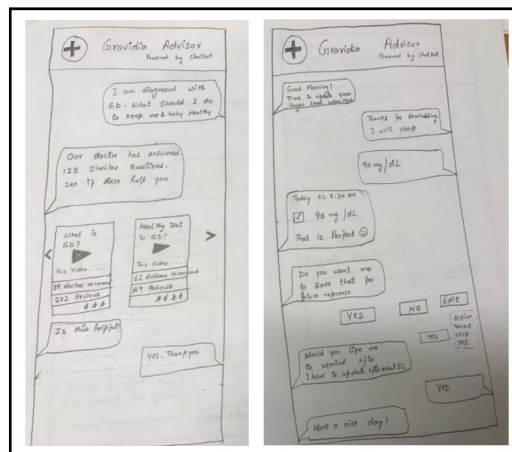 Gravidia Advisor
Powered by Chatbot
I am diagnosed with
GD. What should I do
to keep me & baby Healthy
Our doctor has answered
125 similar questions.
see if these help you
What is
GD?
This Video
89 doctors recommend
232 Reviews
Healthy Diet
In GD?
This Video
62 doctors recommend
149 Reviews
Is this helpful
Yes. Thank you
Gravidia Advisor
Powered by Chatbot
Good Morning!
Time to update your
Sugar Level before Meal
Thanks for Reminding
I will check
90 mg/dL
Today SL 8:30 AM
90 mg/dL
That is Perfect
Do you want me
to save that for
future reference
Yes
NO
Edit
Action
click
YES
Yes
Would you like me
to remind after
1 hour to update after meal SL
Yes
Have a nice day!